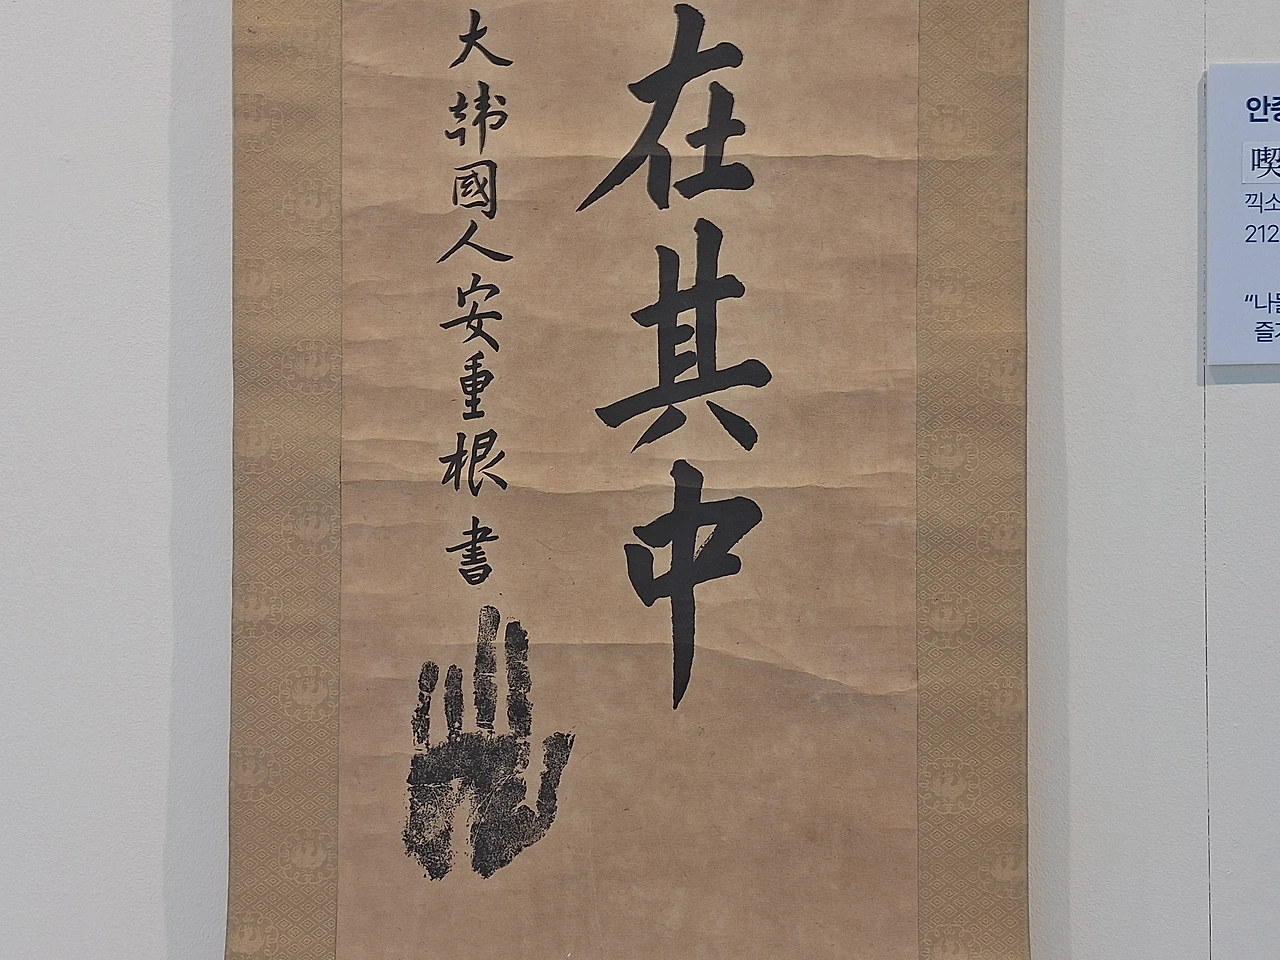 在其中
大韓國人安重根書
안중
喫
끽소
212
“나물
즐거